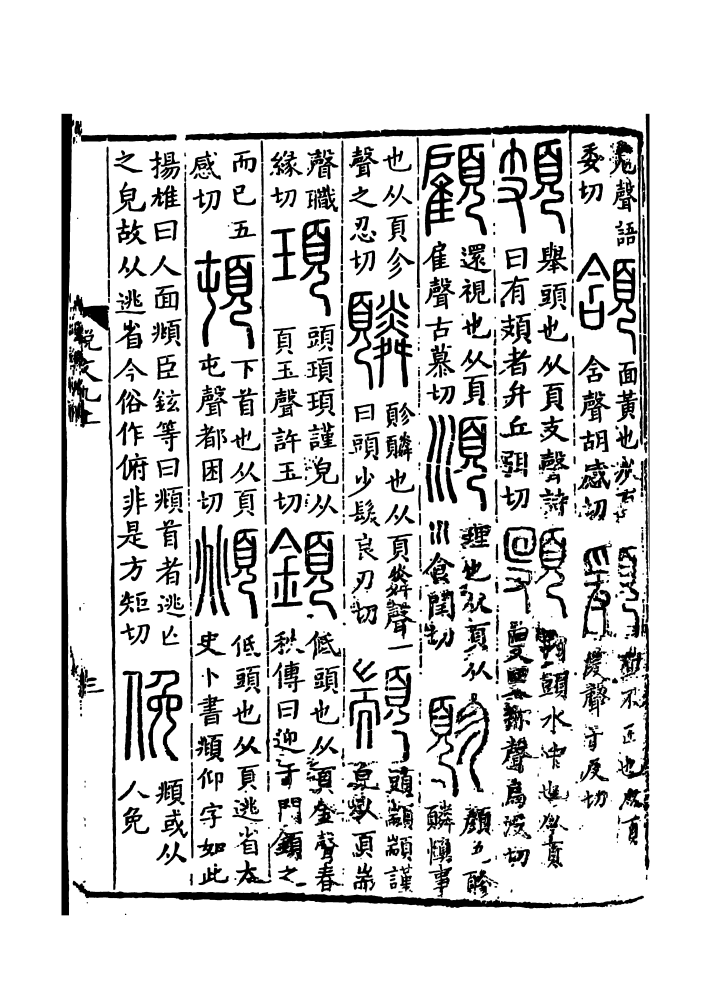 鬼聲語委切 頷 面黃也从頁含聲胡感切 面不正也从頁爰聲于反切
頍 舉頭也从頁支聲詩曰有頍者弁丘弭切 𩑦 内頭水中也从頁𠬛𠬛亦聲烏没切
顧 還視也从頁雇聲古慕切 順 理也从頁从川食閏切 㐱頁 顏色䫰慎事
也从頁㐱聲之忍切 䫰 䫰也从頁粦聲一曰頭少髮良刃切 顓 頭顓顓謹皃从頁耑
聲職緣切 頊 頭頊頊謹皃从頁玉聲許玉切 顉 低頭也从頁金聲春秋傳曰迎于門顉之
而已五感切 頓 下首也从頁屯聲都困切 頫 低頭也从頁逃省太史卜書頫仰字如此
揚雄曰人面頫臣鉉等曰頫首者逃亡之皃故从逃省今俗作俯非是方矩切 俛 頫或从人免
說文九上
三